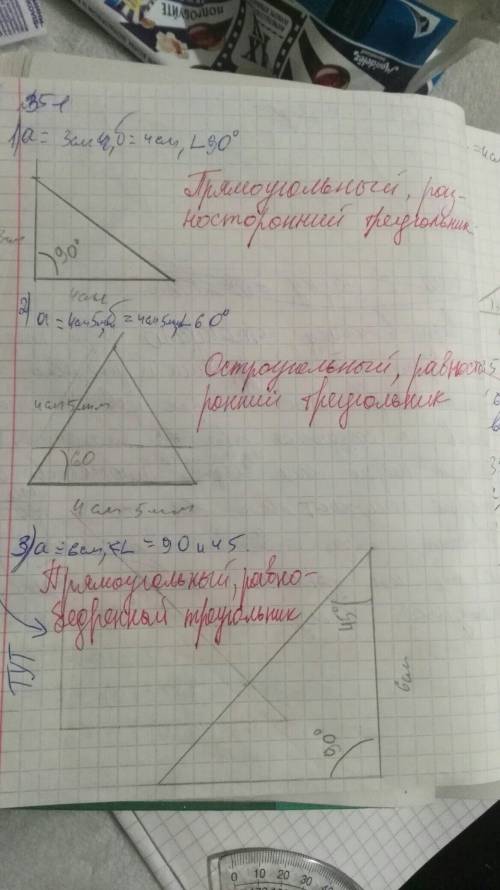 351
1) a = 3см, б = 4см, ∟90°
Прямоугольный, раз-
носторонний треугольник
90°
4см
2) a = 4см5мм, б = 4см5мм, ∟60°
Остроугольный, равносто
ронний треугольник
4см 5мм
60
4 см 5 мм
3) a = 6см, <L = 90 и 45.
Прямоугольный, равно-
бедренный треугольник
ТУТ
45°
6см
90°
0 10 20 30 40